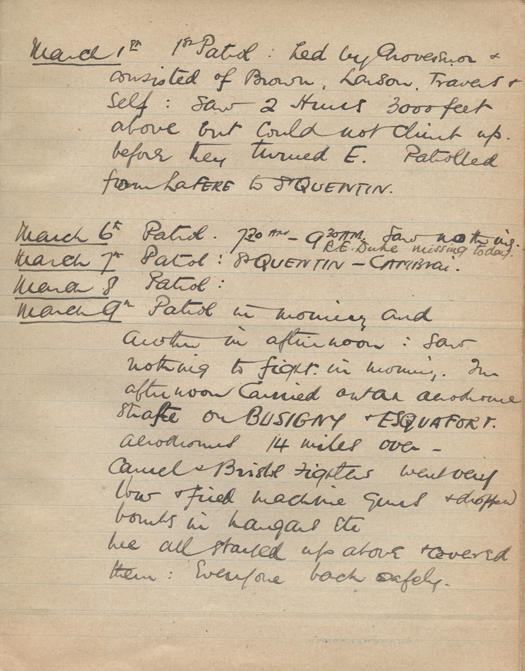 March 1st 1st Patrol : Led by Grosvenor &
consisted of Brown, Larson, Travers &
Self : Saw 2 Huns 3000 feet
above but could not climb up.
before they turned E. Patrolled
from LaFERE to St QUENTIN.
March 6th Patrol. 7.30 AM - 9.30AM. Saw nothing.
R.E. Duke missing today.
March 7th Patrol : St QUENTIN - CAMBRAI.
March 8 Patrol :
March 9th Patrol in morning and
another in afternoon : Saw
nothing to fight in morning. In
afternoon carried out an aerodrome
Strafe on BUSIGNY & ESQUAFORT.
aerodromes 14 miles over -
Camel & Bristol Fighters went very
low & fired machine guns & dropped
bombs in hangars etc
We all stayed up above & covered
them : Everyone back safely.